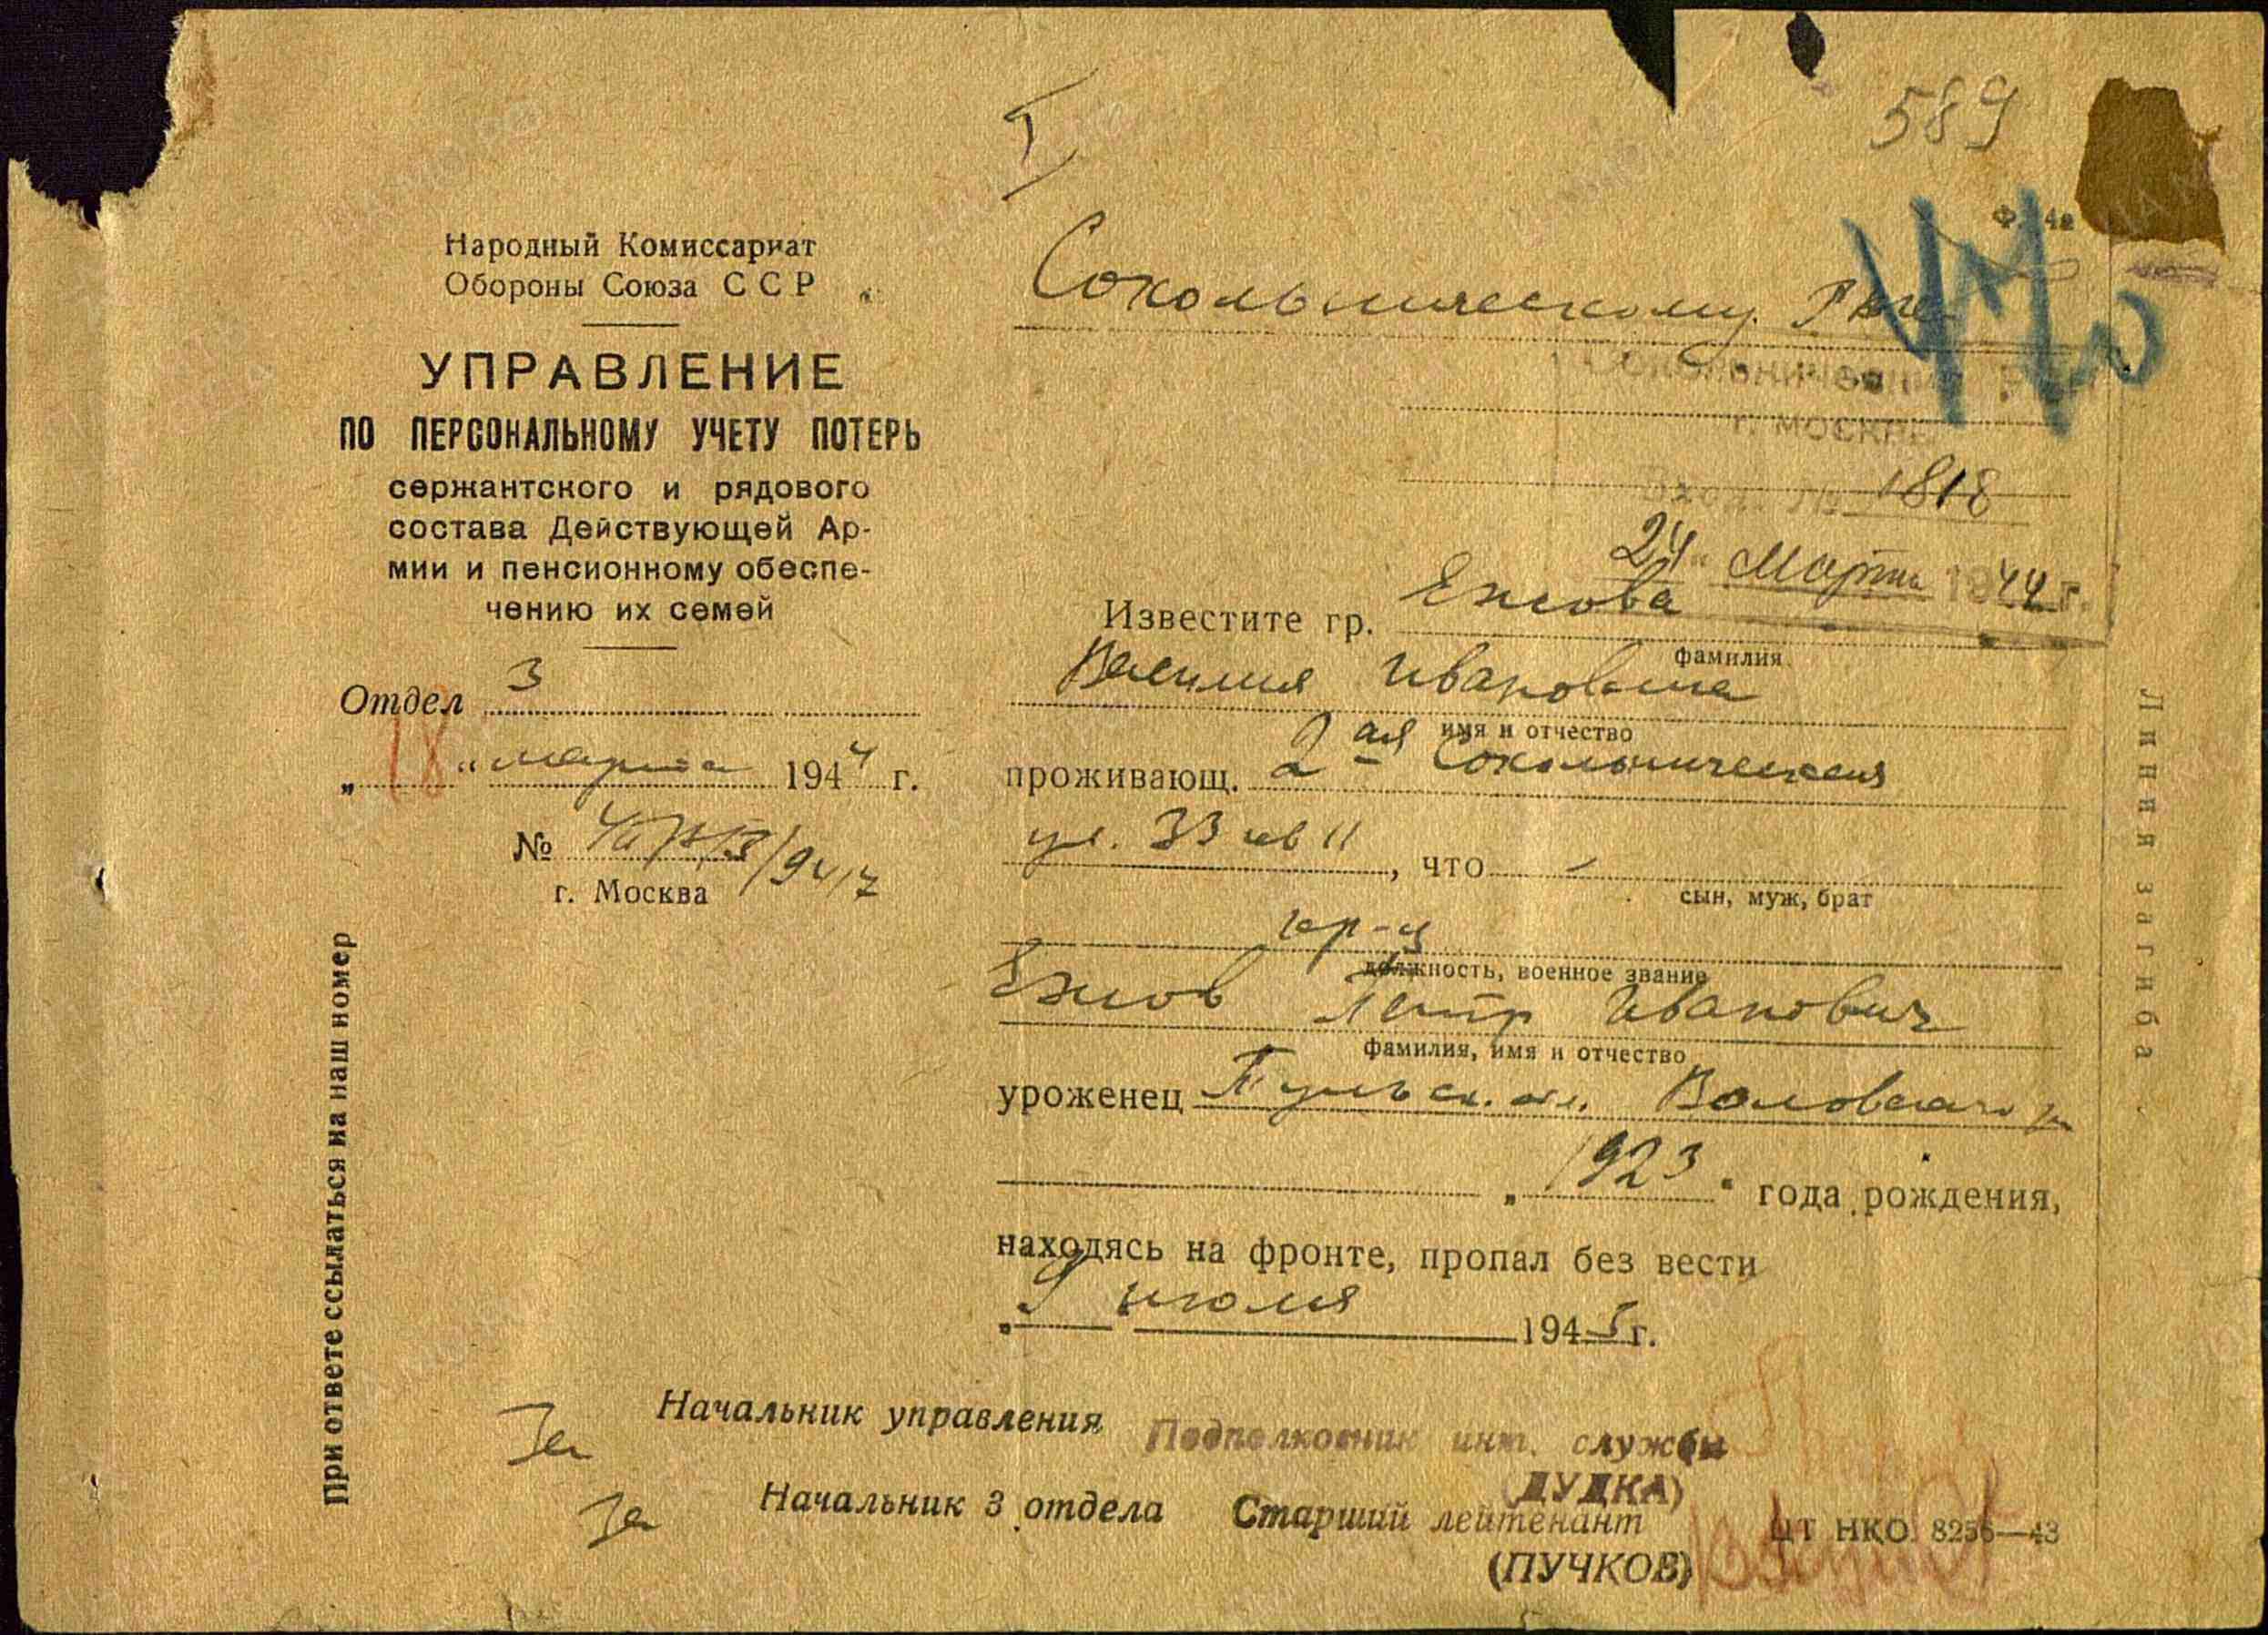 589
Ф. 4а
Народный Комиссариат
Обороны Союза ССР
УПРАВЛЕНИЕ
ПО ПЕРСОНАЛЬНОМУ УЧЕТУ ПОТЕРЬ
сержантского и рядового
состава Действующей Ар-
мии и пенсионному обеспе-
чению их семей
Отдел 3
„18“ марта 1944 г.
№ /9417
г. Москва
При ответе ссылаться на наш номер
Сокольническому РВК
Сокольнический РВК
г. МОСКВЫ
Вход. № 1818
24 " Марта 1944 г.
Известите гр. Ежова
фамилия
Василия Ивановича
имя и отчество
проживающ. 2ая Сокольническая
ул. 33 кв 11, что -
сын, муж, брат
кр-ц
должность, военное звание
Ежов Петр Иванович
фамилия, имя и отчество
уроженец Тульск. обл. Воловского р
„1923“ года рождения,
находясь на фронте, пропал без вести
„ июля 194 г.
За Начальник управления Подполковник инт. службы
(ДУДКА)
За Начальник 3 отдела Старший лейтенант
(ПУЧКОВ)
ЦТ НКО 8256—43
Линия загиба.